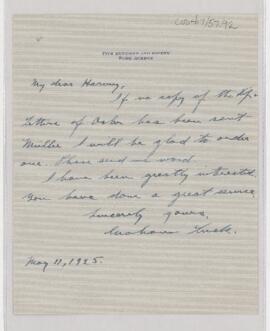 My dear Harvey,
If no copy of the
Letters of Osler has been sent
I will be glad to order
one. Please send me word.
I have been greatly interested.
You have done a great service
Sincerely yours,
May 11, 1925.